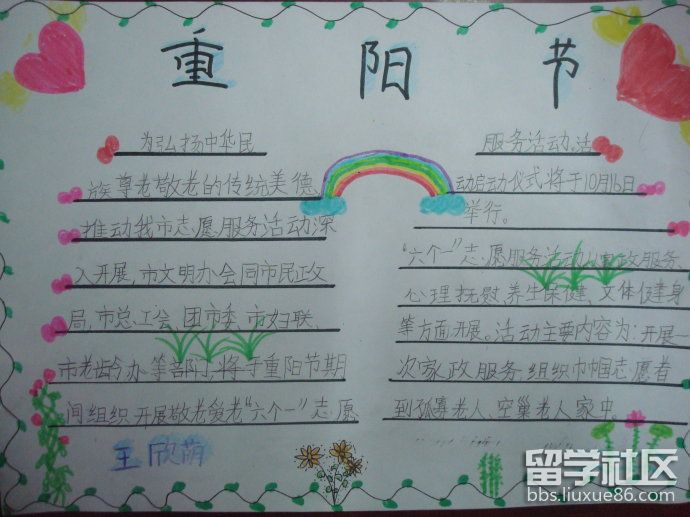 重阳节
为弘扬中华民
族尊老敬老的传统美德
推动我市志愿服务活动深
入开展,市文明办会同市民政
局,市总工会、团市委、市妇联、
市老龄办等部门,将于重阳节期
间组织开展敬老爱老“六个一”志愿
王欣荫
服务活动,活
动启动仪式将于10月16日
举行。
“六个一”志愿服务活动从家政服务、
心理抚慰、养生保健、文体健身
等方面开展。活动主要内容为:开展一
次家政服务,组织巾帼志愿者
到孤寡老人、空巢老人家中
留学社区
bbs.liuxue86.com